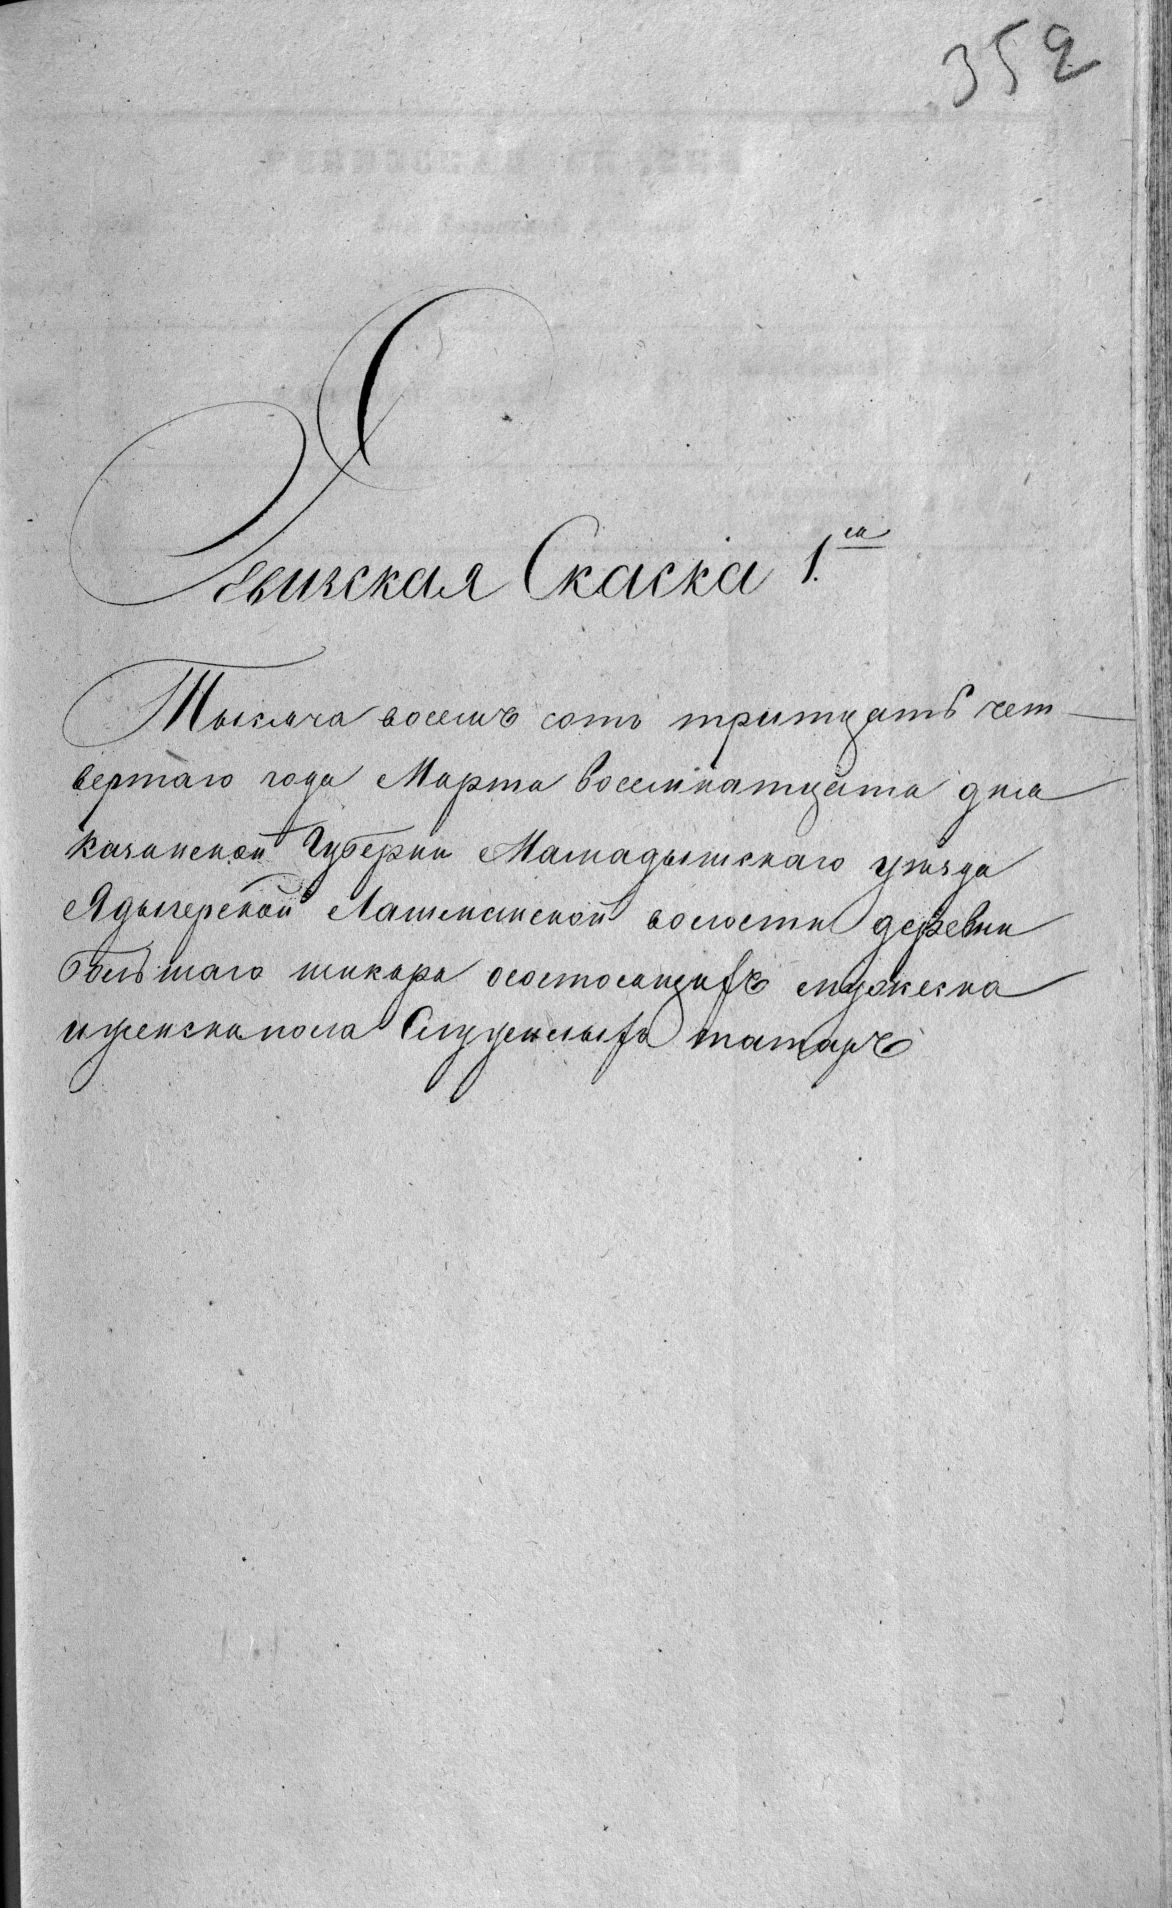 352
Ревизская Скаска 1.ая
Тысяча восемъ сотъ тритцать чет
вертаго года Марта восемнатцата дня
казанской Губернии Мамадышскаго уѣзда
Ядыгерской Лашманской волости деревни
большаго шикара осостоящихъ мужеска
иженска пола Служилыхъ татаръ